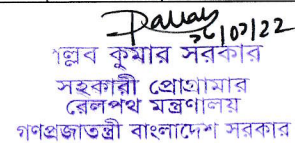 ২৮/০৮/২২
পল্লব কুমার সরকার
সহকারী প্রোগ্রামার
রেলপথ মন্ত্রণালয়
গণপ্রজাতন্ত্রী বাংলাদেশ সরকার